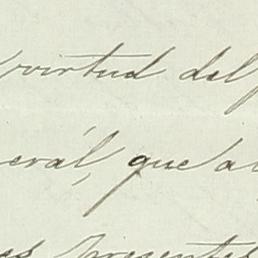 virtud del
eral, que a
es presentes